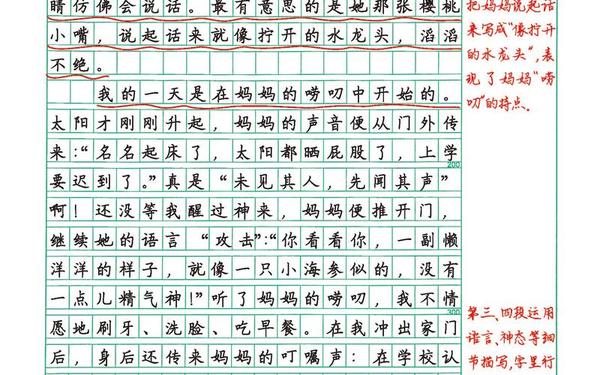 睛仿佛会说话。最有意思的是她那张樱桃
小嘴，说起话来就像拧开的水龙头，滔滔
不绝。
我的一天是在妈妈的唠叨中开始的。
太阳才刚刚升起，妈妈的声音便从门外传
来：“名名起床了，太阳都晒屁股了，上学
200
要迟到了。”真是“未见其人，先闻其声”
啊！还没等我醒过神来，妈妈便推开门，
继续她的语言“攻击”：“你看看你，一副懒
洋洋的样子，就像一只小海参似的，没有
一点儿精气神！”听了妈妈的唠叨，我不情
300
愿地刷牙、洗脸、吃早餐。在我冲出家门
后，身后还传来妈妈的叮嘱声：在学校认
把妈妈说起话
来写成“像拧开
的水龙头”，表
现了妈妈“唠
叨”的特点。
第三、四段运用
语言、神态等细
节描写，字里行